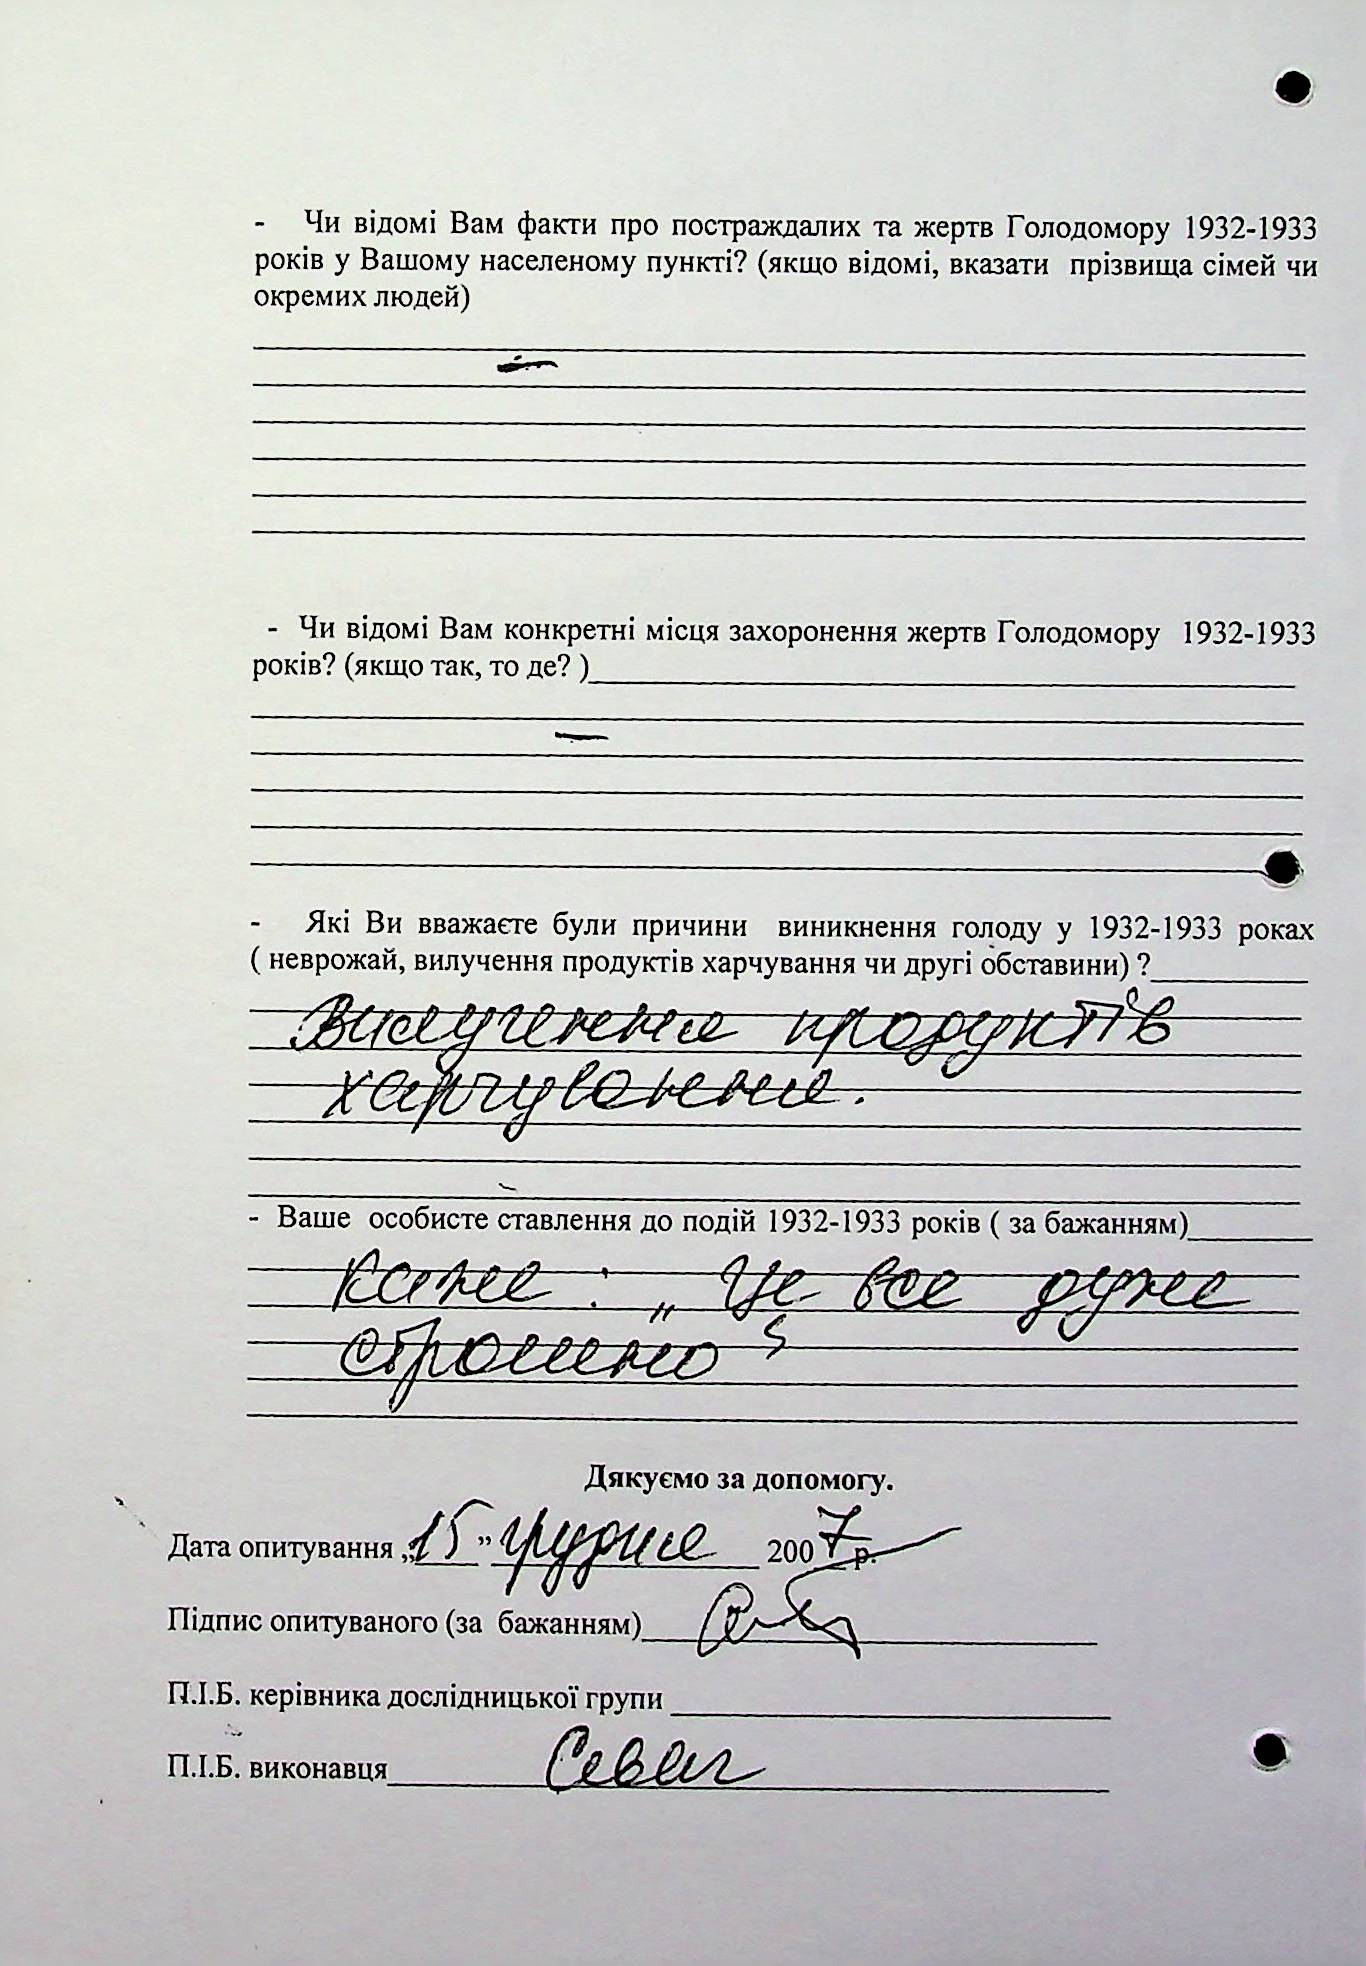 - Чи відомі Вам факти про постраждалих та жертв Голодомору 1932-1933
років у Вашому населеному пункті? (якщо відомі, вказати прізвища сімей чи
окремих людей)
—
- Чи відомі Вам конкретні місця захоронення жертв Голодомору 1932-1933
років? (якщо так, то де? )
—
- Які Ви вважаєте були причини виникнення голоду у 1932-1933 роках
( неврожай, вилучення продуктів харчування чи другі обставини) ?
Вилучення продуктів
харчування.
- Ваше особисте ставлення до подій 1932-1933 років ( за бажанням)
Каже: „Це все дуже
страшно"
Дякуємо за допомогу.
Дата опитування „15" грудня 2007 р.
Підпис опитуваного (за бажанням)
П.І.Б. керівника дослідницької групи
П.І.Б. виконавця